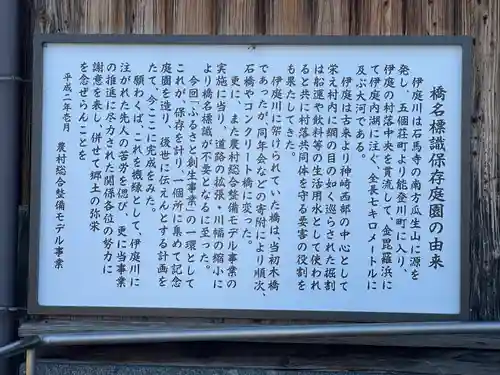 橋名標識保存庭園の由来
伊庭川は石馬寺の南方瓜生山に源を
発し、五個荘町より能登川町に入り、
伊庭の村落中央を貫流して、金毘羅浜に
て伊庭内湖に注ぐ、全長七キロメートルに
及ぶ大河である。
伊庭は古来より神崎西部の中心として
栄え村内に網の目の如く巡らされた掘割
は船運や飲料等の生活用水として使われ
ると共に村落共同体を守る要害の役割を
も果たしてきた。
伊庭川に架けられていた橋は、当初木橋
であったが、同年会などの寄附により順次、
石橋やコンクリート橋に変った。
更に、また農村総合整備モデル事業の
実施に当り、道路の拡張・川幅の縮小に
より橋名標識が不要となるに至った。
今回「ふるさと創生事業」の一環として
これが、保存を計り、一個所に集めて記念
庭園を造り、後世に伝えんとする計画を
たて、今ここに完成をみた。
願わくば、これを機縁として、伊庭川に
注がれた先人の苦労を偲び、更に当事業
の推進に尽力された関係各位の努力に
謝意を表し、併せて郷土の弥栄
を念ぜらんことを
平成二年壱月 農村総合整備モデル事業